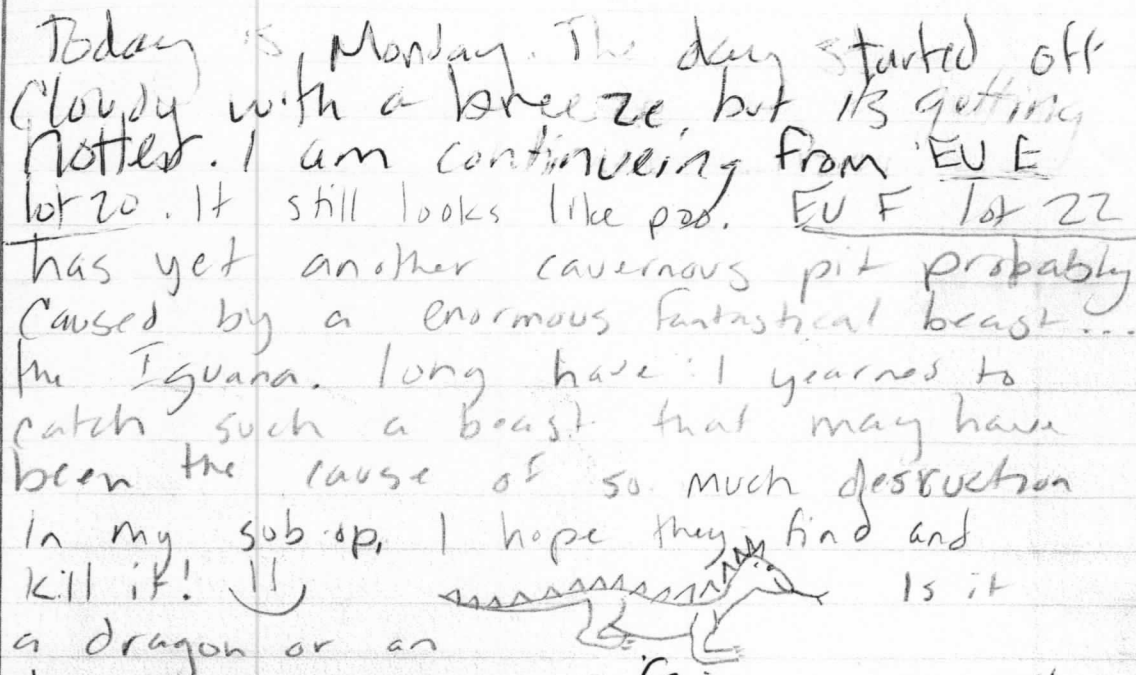 Today is Monday. The day started off
Cloudy with a breeze, but it's getting
hotter. I am continueing from EU E
lot 20. It still looks like poo. EU F lot 22
has yet another cavernous pit probably
Caused by a enormous fantastical beast...
the Iguana. long have I yearned to
catch such a beast that may have
been the cause of so much desruction
in my subop, I hope they find and
kill it! Is it
a dragon or an